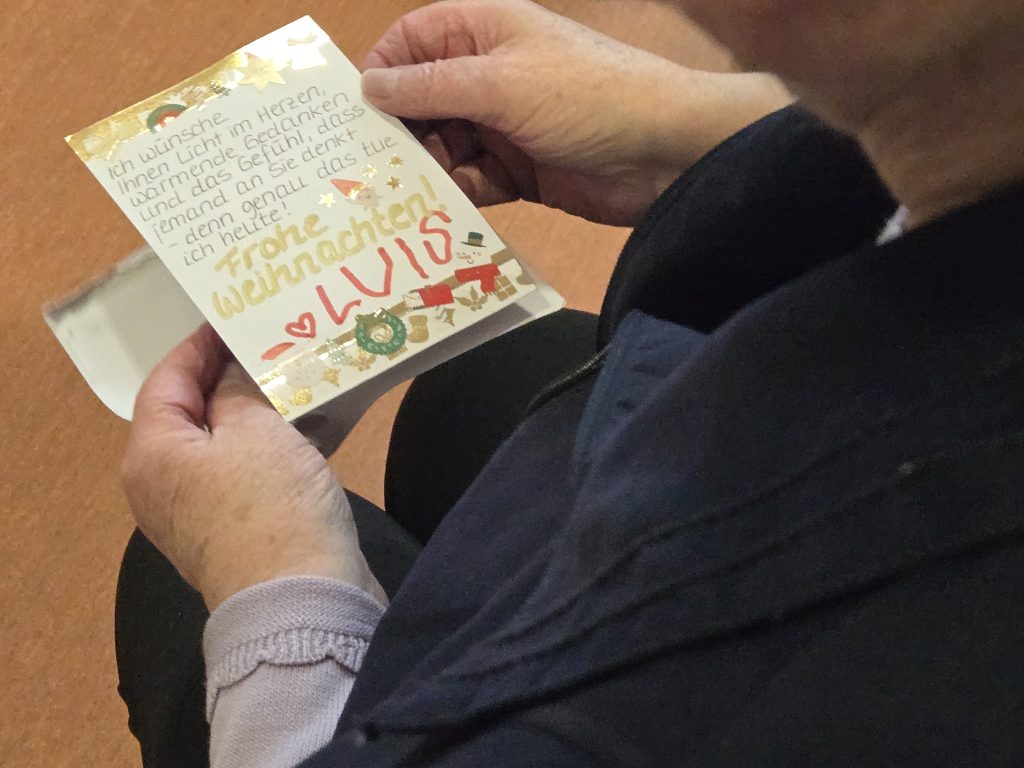 Ich wünsche
Ihnen Licht im Herzen,
wärmende Gedanken
und das Gefühl, dass
jemand an Sie denkt
- denn genau das tue
ich heute!
Frohe
Weihnachten!
LUIS